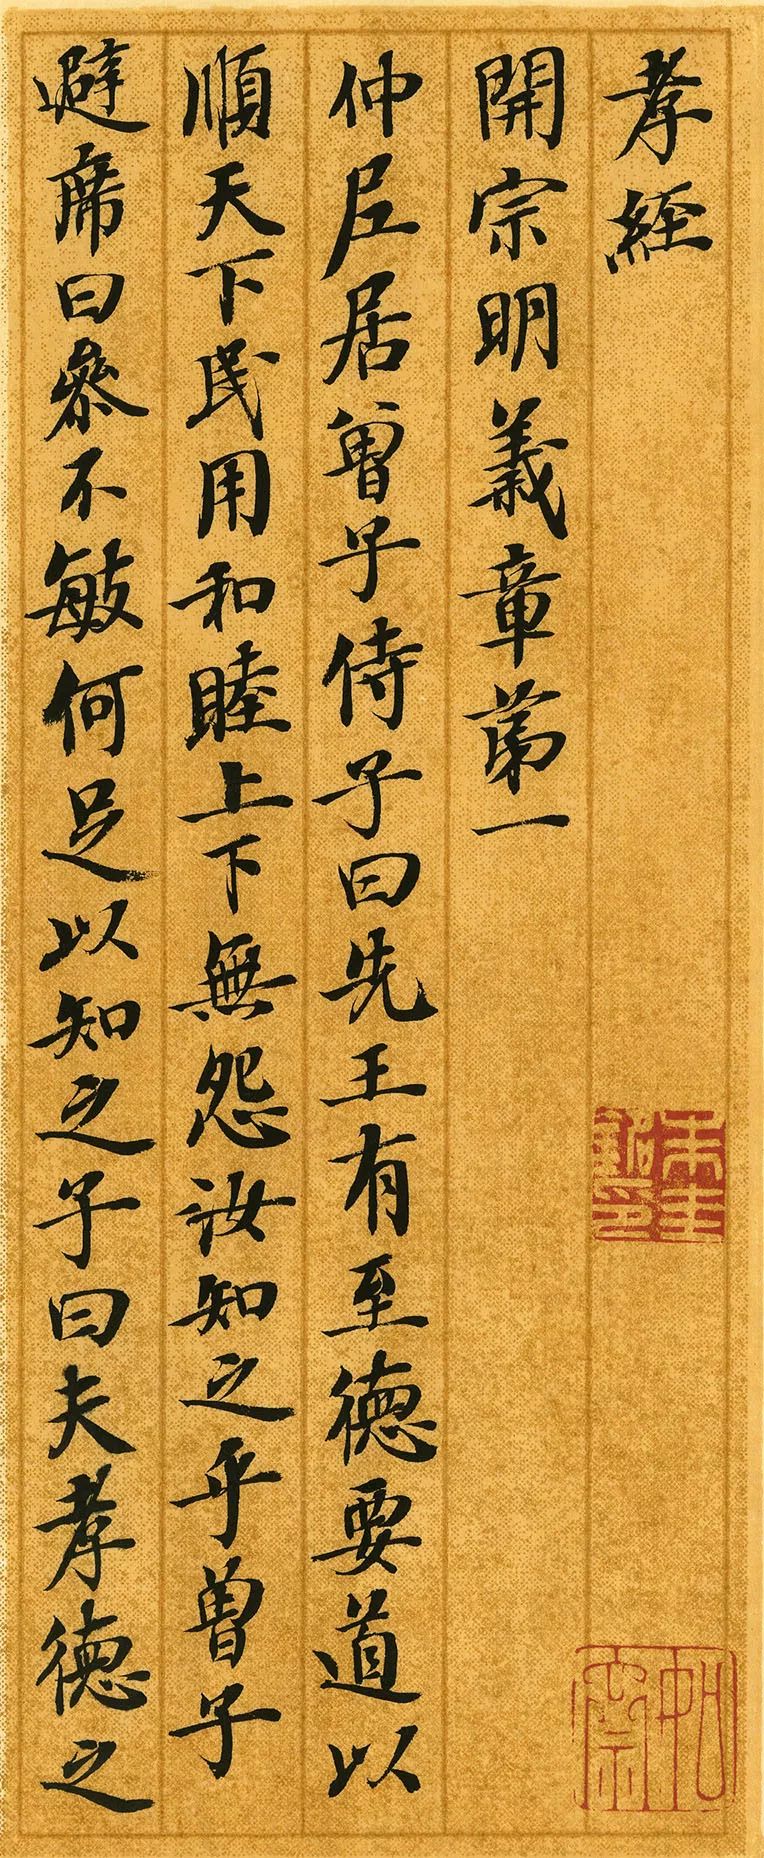 孝經
開宗明義章第一
仲尼居曾子侍子曰先王有至德要道以
順天下民用和睦上下無怨汝知之乎曾子
避席曰參不敏何足以知之子曰夫孝德之